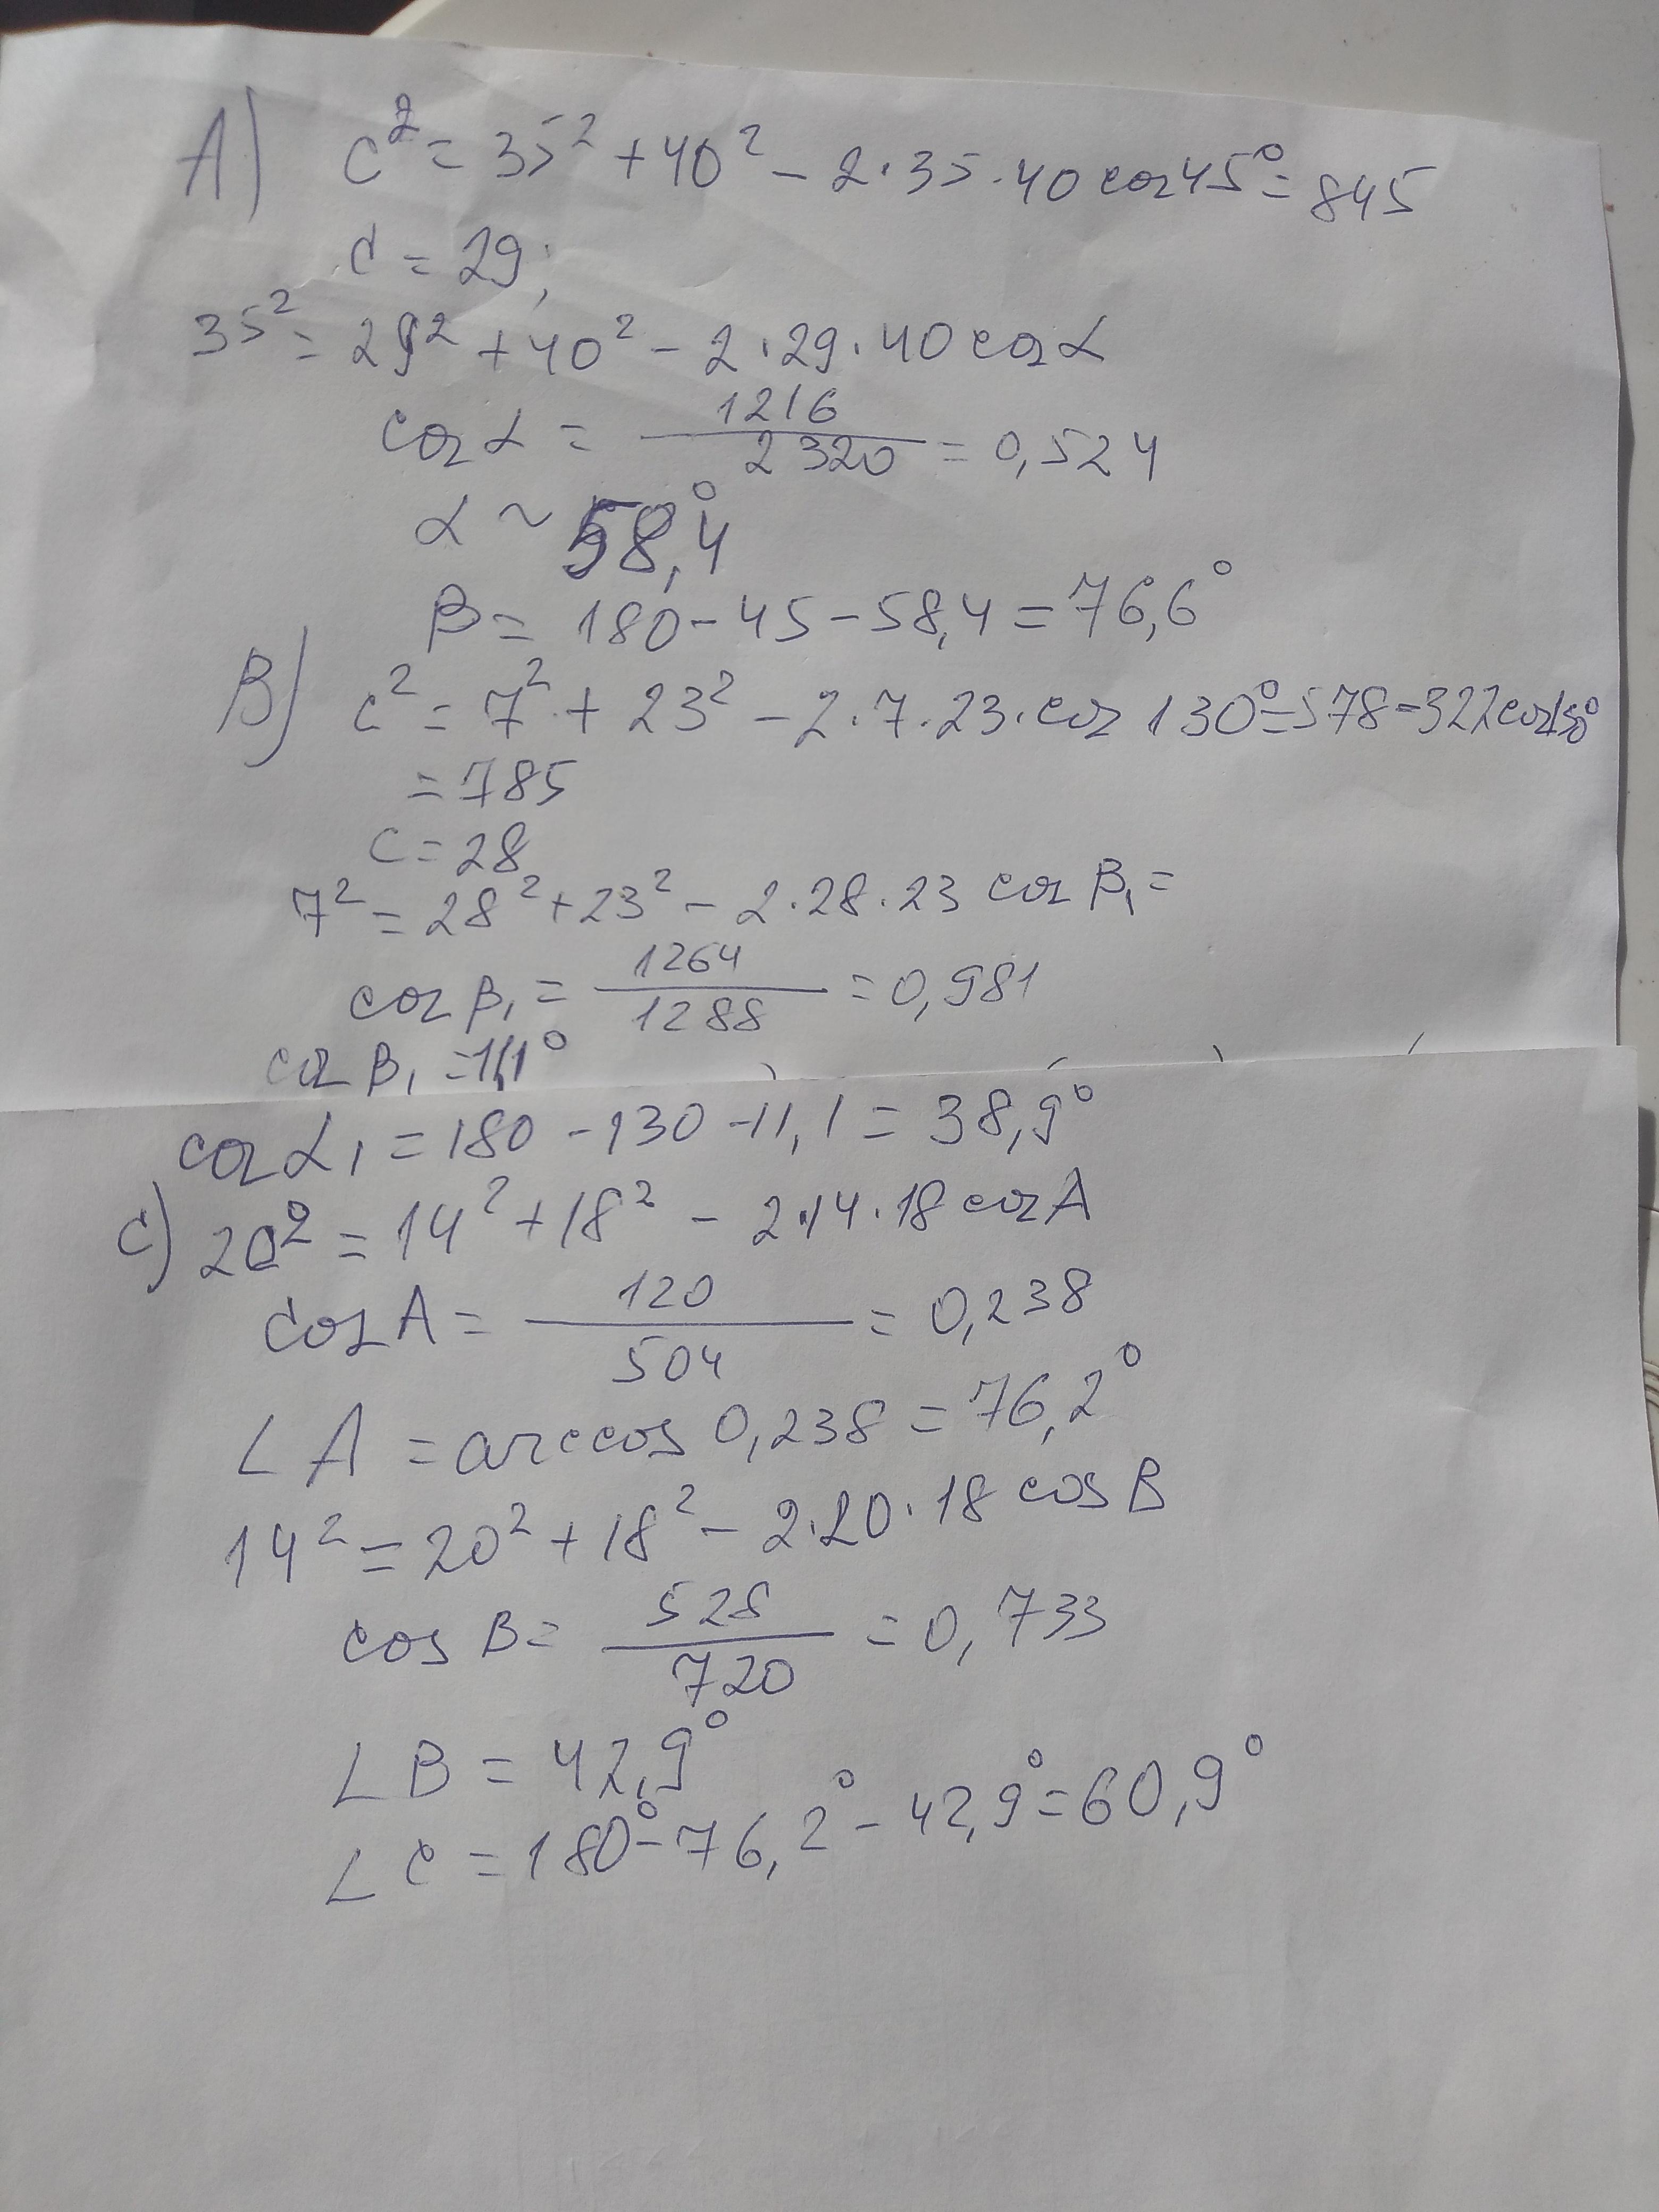 A) c² = 35² + 40² - 2·35·40 cos 45° = 845
c = 29;
35² = 29² + 40² - 2·29·40 cos α
cos α = 1216/2320 = 0,524
α ~ 58,4°
β = 180 - 45 - 58,4 = 76,6°
B) c² = 7² + 23² - 2·7·23·cos 130° = 578 - 322 cos 130°
= 785
c = 28
7² = 28² + 23² - 2·28·23 cos β₁ =
cos β₁ = 1264/1288 = 0,981
cos β₁ = 11,1°
cos α₁ = 180 - 130 - 11,1 = 38,9°
c) 20² = 14² + 18² - 2·14·18 cos A
cos A = 120/504 = 0,238
∠A = arccos 0,238 = 76,2°
14² = 20² + 18² - 2·20·18 cos B
cos B = 528/720 = 0,733
∠B = 42,9°
∠C = 180° - 76,2° - 42,9° = 60,9°